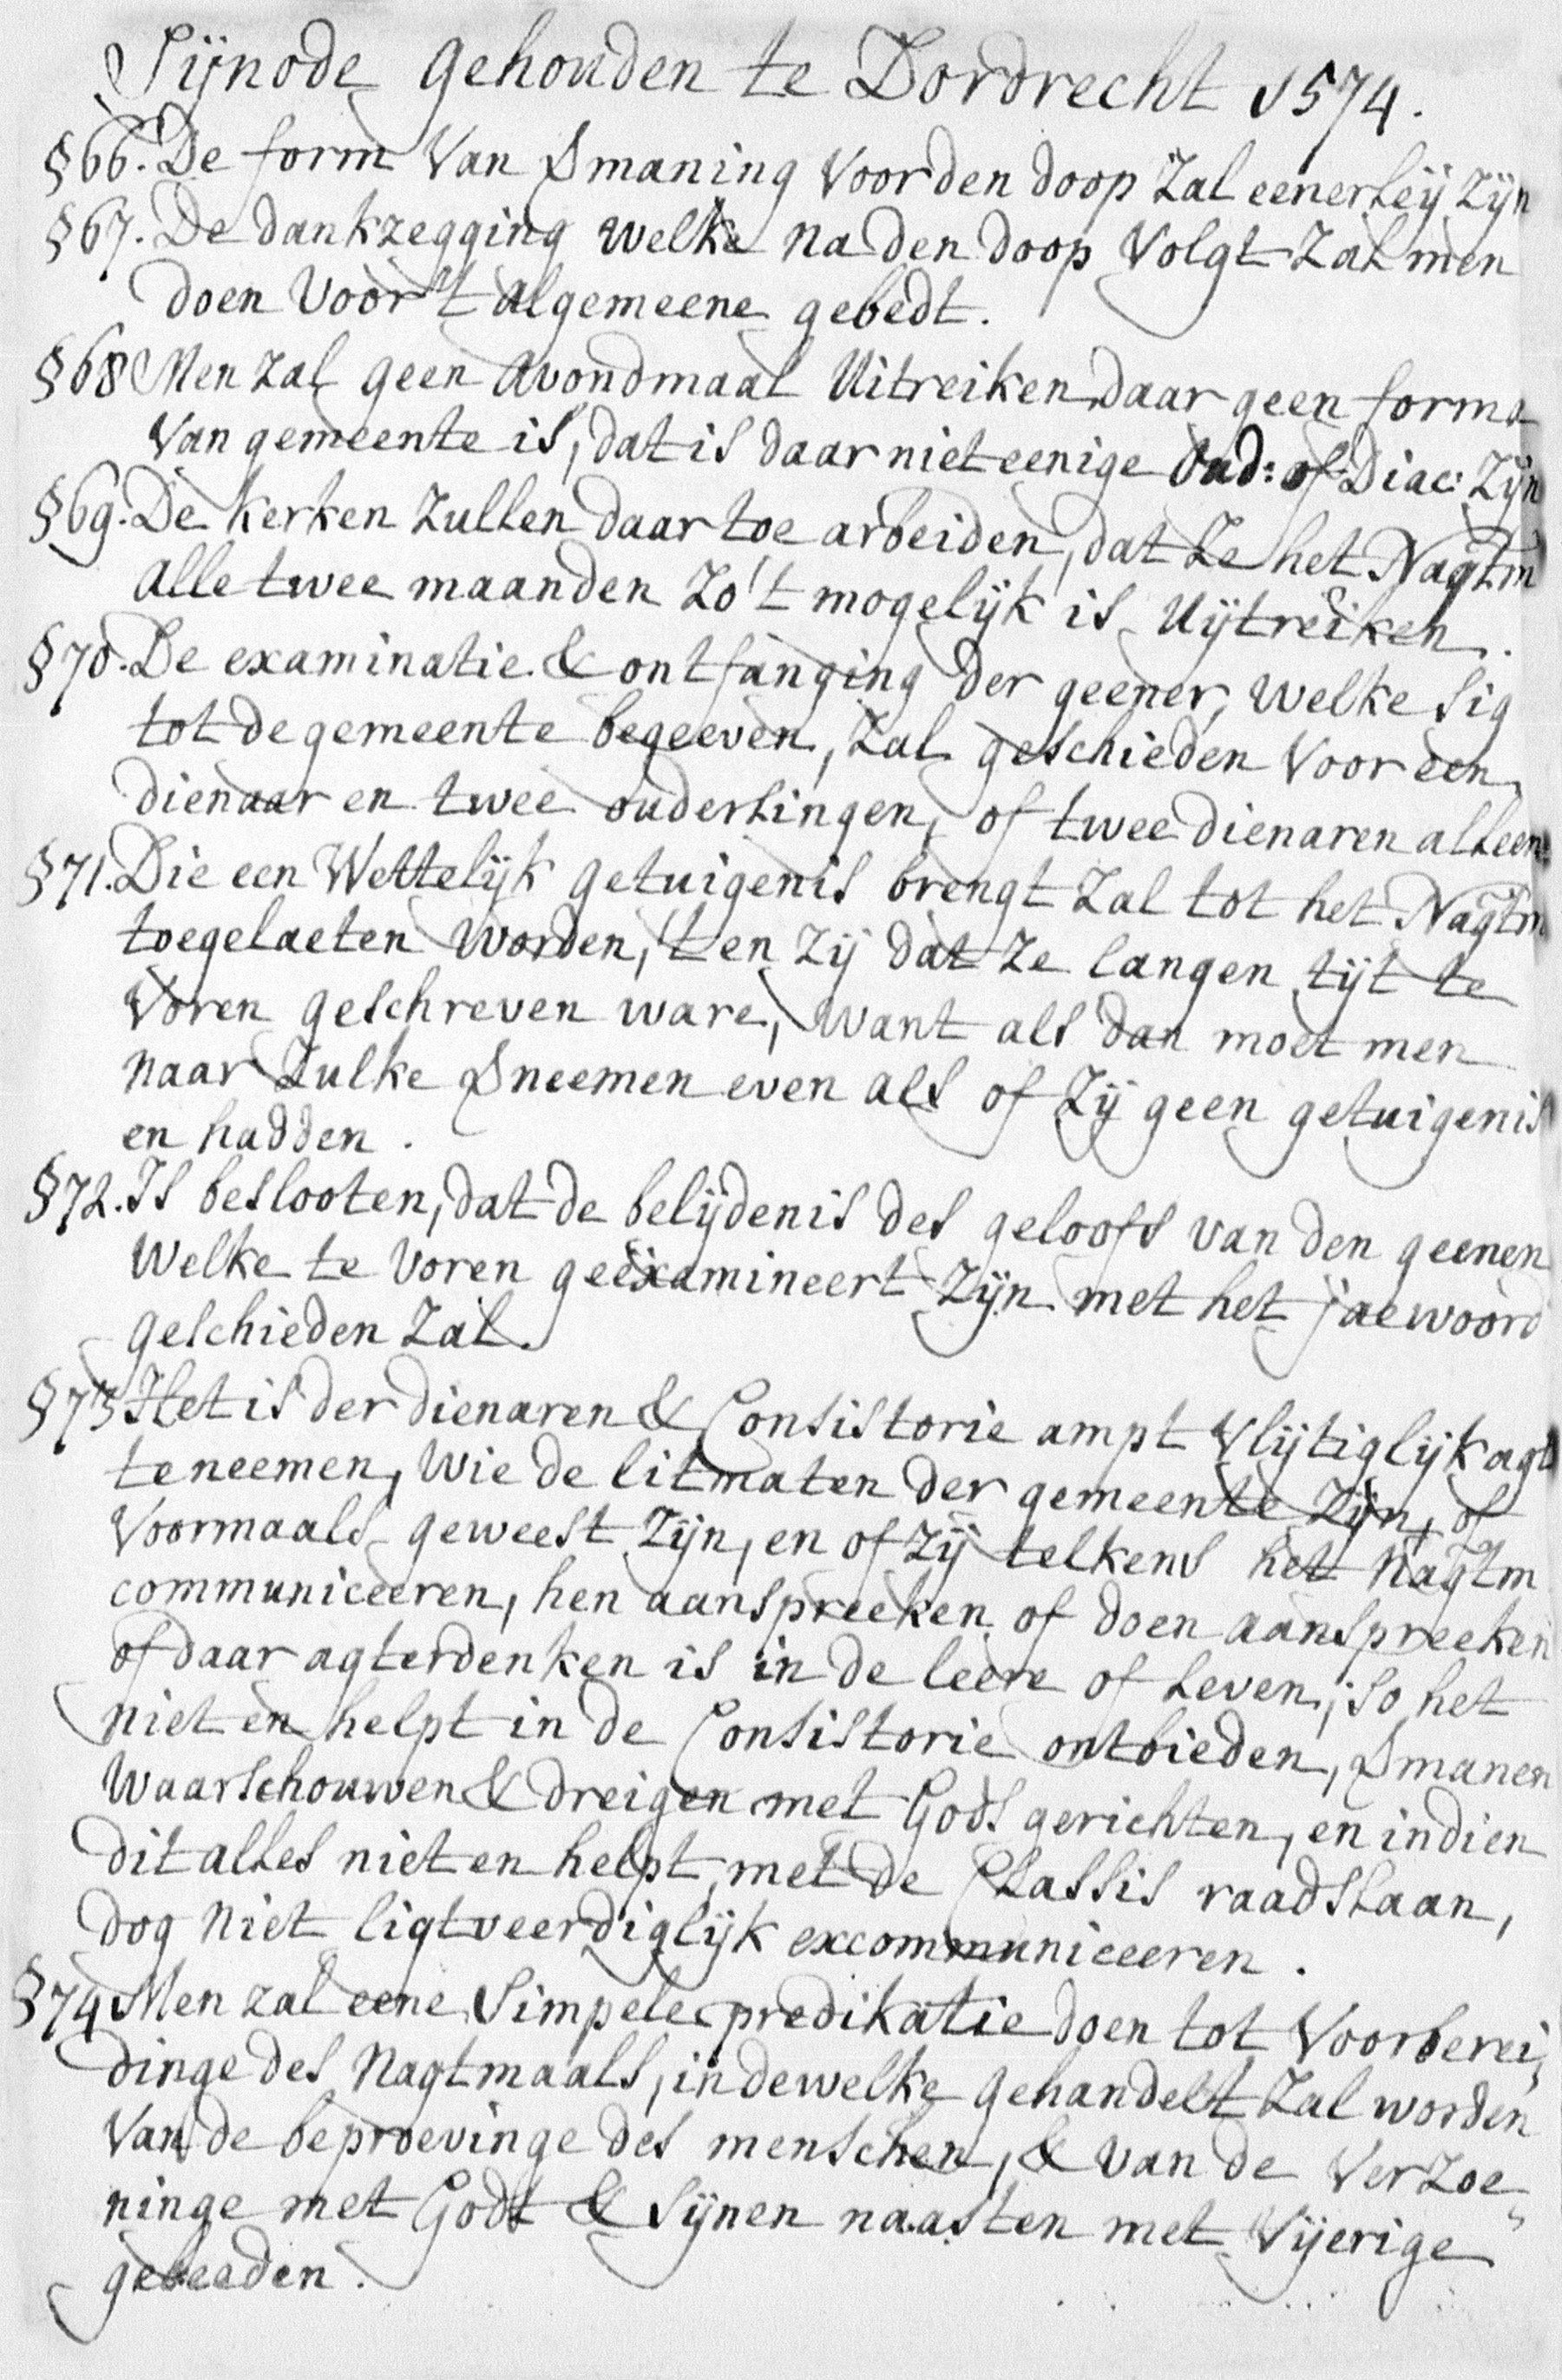 Sijnode gehouden te Dordrecht 1574.
§66. De form van Vmaning voor den doop zal eenerleij zijn
§67. De dankzegging welke na den doop volgt zal men
doen voor 't algemeene gebedt.
§68 Men zal geen avondmaal uitreiken, daar geen forma
van gemeente is, dat is daar niet eenige Oud: of Diac: zijn
§69. De kerken zullen daar toe arbeiden, dat ze het Nagtm
alle twee maanden zo 't mogelijk is uijtreiken.
§70. De examinatie & ontfanging der geener, welke sig
tot de gemeente begeeven, zal geschieden voor een
dienaar en twee ouderlingen, of twee dienaren alleen.
§71. Die een wettelijk getuigenis brengt zal tot het Nagtm
toegelaeten worden, 't en zij dat ze langen tijt te
voren geschreven ware, want als dan moet men
naar zulke Vneemen even als of zij geen getuigenis
en hadden.
§72. Is beslooten, dat de belijdenis des geloofs van den geenen
welke te voren geëxamineert zijn met het jaewoord
geschieden zal.
§73 Het is der dienaren & Consistorie ampt vlijtiglijk agt
te neemen, wie de litmaten der gemeente zijn, of
voormaals geweest zijn, en of zij telkens het nagtm
communiceeren, hen aanspreeken of doen aanspreeken
of daar agterdenken is in de leere of leven; so het
niet en helpt in de Consistorie ontbieden, Vmanen
waarschouwen & dreigen met Gods gerichten, en indien
dit alles niet en helpt, met de Classis raadslaan,
dog niet ligtveerdiglijk excommuniceeren.
§74 Men zal eene simpele predikatie doen tot voorberei,
dinge des nagtmaals, in dewelke gehandelt zal worden
van de beproevinge des menschen, & van de verzoe-
ninge met Godt & sijnen naasten met vijerige
gebeeden.